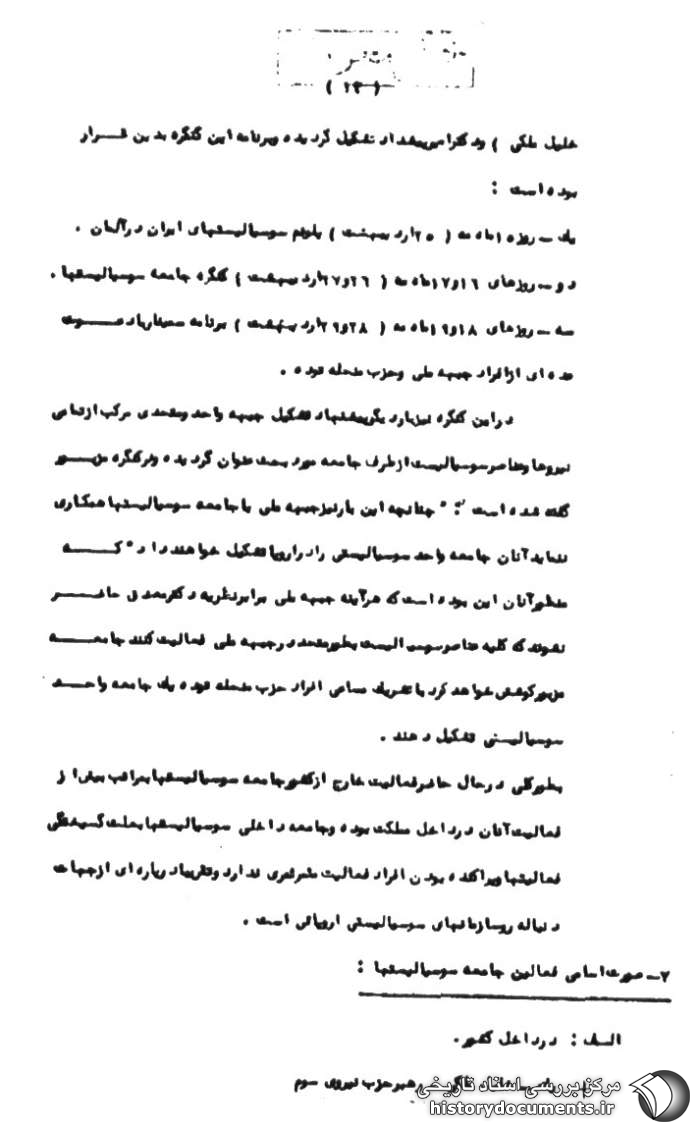 (۱۳)
خلیل ملکی ) ودکترامیرپیشداد تشکیل گردیده وبرنامه این کنگره بدین قـــرار
بوده است :
یك ــ روزه ۱ماه مه ( ۲۵اردیبهشت ) پلنوم سوسیالیستهای ایران درآلمان .
دو ــ روزهای ۱۶و۱۷ماه مه ( ۲۶و۲۷اردیبهشت ) کنگره جامعه سوسیالیستها .
سه ــ روزهای ۱۸و۱۹ماه مه ( ۲۸و۲۹اردیبهشت ) برنامه سمیناربادعـــوت
عده ای ازافراد جبهه ملی وحزب منحله توده .
دراین کنگره نیزباردیگرپیشنهاد تشکیل جبهه واحد ومتحدی مرکب ازتمامی
نیروهاوعناصرسوسیالیست ازطرف جامعه مورد بحث عنوان گردیده ودرکنگره مزبـــور
گفته شده است : " چنانچه این بارنیزجبهه ملی باجامعه سوسیالیستهاهمکاری
ننماید آنان جامعه واحد سوسیالیستی رادراروپاتشکیل خواهندداد " کـــه
منظورآنان این بوده است که هرآینه جبهه ملی برابرنظریه دکترمصدق حاضـــر
نشوند که کلیه عناصرسوسیالیست بطورمتحد درجبهه ملی فعالیت کنند جامعـــه
مزبورکوشش خواهد کرد باتشریك مساعی افراد حزب منحله توده یك جامعه واحـــد
سوسیالیستی تشکیل دهند .
بطورکلی درحال حاضرفعالیت خارج ازکشورجامعه سوسیالیستهابمراتب بیش از
فعالیت آنان درداخل مملکت بوده وجامعه داخلی سوسیالیستهابعلت گسیختگی
فعالیتهاوپراکنده بودن افراد فعالیت مثمرثمری ندارد وتقریباد رپاره ای ازجهات
دنباله روسازمانهای سوسیالیستی اروپائی است .
۷ــ صورت اسامی فعالین جامعه سوسیالیستها :
الف : درداخل کشور.
رهبرحزب نیروی سوم
مرکز بررسی اسناد تاریخی
historydocuments.ir